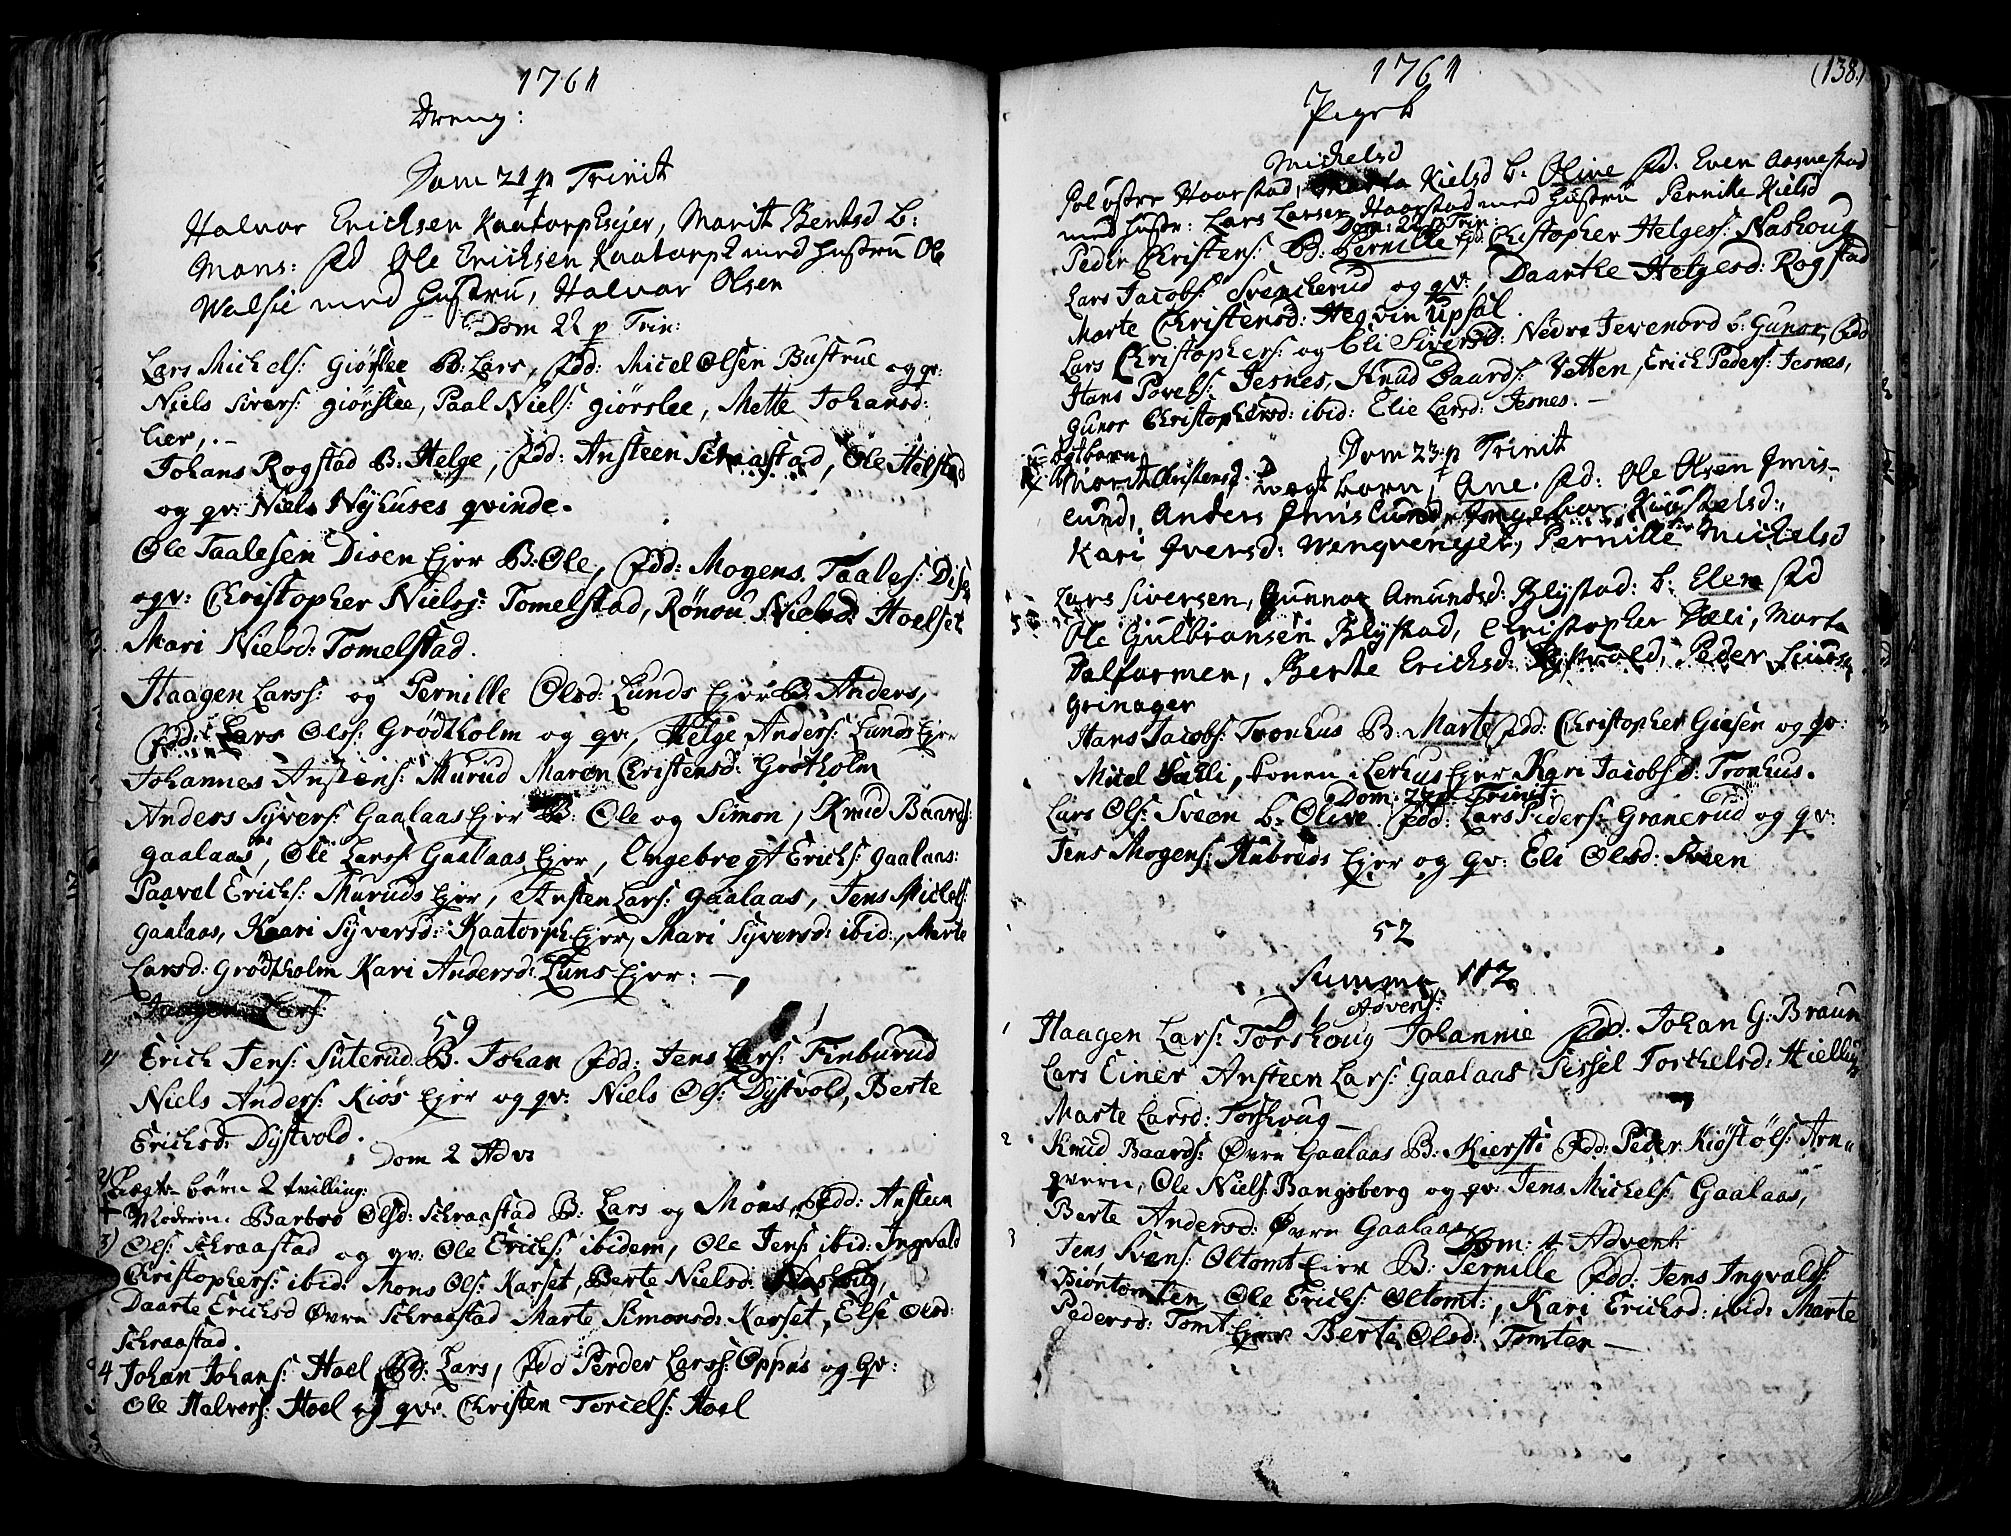 1761
Dreng:
Dom 21 p Trinit
Halvor Erichsen Kaatorpseyer, Marit Bentsd B:
Mons: fd Ole Erichsen Kaatorps med hustru Ole
Walsie med hustru, Halvor Olsen
Dom 22 p Trin:
Lars Michels: Giørslee B: Lars, fdd: Micel Olsen Bustrue og qv:
Niels Sivers: giørslee, Paal Niels: giørslee, Mette Johansd:
lier,.-
Johans Rogstad B: Helge, fdd: Ansteen Schraastad, Ole Helstad
og qv: Niels Nyhuses qvinde.
Ole Taalesen Disen Ejer B: Ole, fdd: Mogens Taales: Disen
og qv: Christopher Niels: Tomelstad, Rønou Nielsd: Hoelset
Mari Nielsd: Tomelstad.
Haagen Lars: og Pernille Olsd: Lunds Ejer B: Anders,
fdd: Lars Ols: Grødtholm og qv, Helge Anders: Lunds Ejer
Johannes Anstens: Murud Maren Christensd: Grøtholm
Anders Syvers: Gaalaas Ejer B: Ole og Simon, Knud Baards:
gaalaas, Ole Lars: Gaalaas Ejer, Engebregt Erichs: gaalaas:
Paavel Erichs: Muruds Ejer, Ansten Lars: gaalaas, Jens Michels:
gaalaas, Kaari Syversd: Kaatorps Ejer, Mari Syversd: ibid:, Marte
Larsd: Grødtholm Kari Andersd: Luns Ejer: -
Haagen Lars:
59
1) Erich Jens: Suterud B. Johan fdd: Jens Lars: Finburud
Niels Anders: Kiøs Ejer og qv: Niels Ols: Dystvold, Berte
Erichsd: Dystvold.
Dom 2 Adv:
2) Uægte børn 2 tvilling:
Moderen. Barbro Olsd: Schraastad B: Lars og Mons, fdd: Ansteen
3) Ols: Schraastad og qv: Ole Erichs: ibidem, Ole Jens: ibid: Ingvald
Christophers: ibid: Mons Ols: Karset, Berte Nielsd: Naskoug,
Daarte Erichsd Øvre Schraastad Marte Simonsd: Karset, Else Olsd:
Schraastad.
4 Johan Johans: Hoel B: Lars, fdd Perder Lars: Oppus og qv:
Ole Halvors: Hoel og qv: Christen Torcels: Hoel
1761
(138.)
Piger b
Michelsd
Pol østre Haarstad, Marta Kielsd b: Olive fd: Even Aasnestad
med hustr: Lars Larsen Haarstad med Hustru Pernille Kielsd
Dom: 22 p Trin:
Peder Christens: B: Pernille fdd: Christopher Helges: Naskoug
Lars Jacobs: Svencherud og qv:, Daarthe Helgesd: Rogstad
Marte Christensd: Hegvin Upsal.
Lars Christophers: og Eli Siversd: Nedre Jevenord b: Gunor, fdd
Hans Povels: Jesnes, Knud Baards: Vetten, Erich Peders: Jesnes,
gunor Christophersd: ibid: Elie Larsd: Jesnes. -
Dom 23: p Trinit
Marit Christensd: uægte barn, Ane. fd: Ole Olsen Imis-
lund, Anders Imislund, Ingebor Kiøstelsd:,
Kari Iversd: Wengvenejer, Pernille Michelsd
Lars Siversen, Gunnor Amundsd: Blystad: b: Elen fd
Ole Gulbransen Blystad, Christopher Dæli, Marta
Dalfarmen, Berte Erichsd: Dystvold, Peder Siursen
Grinager
Hans Jacobs: Tronhus B. Marte fdd: Christopher Giesen og qv:
Micel Dælli, konen i Lerhus Ejer Kari Jacobsd: Tronhus.
Dom: 27 p Trinit:
Lars Ols: Sveen b: Olive. fdd: Lars Peders: Granerud og qv:
Jens Mogens: Habreds Ejer og qv: Eli Olsd: Sveen
52
Summa 112
D 1 Advent:
1 Haagen Lars: Torshoug Johannie fdd. Johan G: Braun
Lars Einer Ansteen Lars: Gaalaas Sissel Torchelsd: Hiellum
Marte Larsd: Torshoug -
2 Knud Baards: Øvre Gaalaas B: Kiersti fdd: Peder Kiøstøls: Arn-
qvern, Ole Niels: Bangsberg og qv: Jens Michels: Gaalaas,
Berte Andersd: Øvre Gaalaas
Dom: 4 Advent:
3 Jens Svens: Oltomt Ejer B: Pernille fdd: Jens Ingvalds:
Biøntomten Ole Erichs: Oltomt:, Kari Erichsd: ibid: Marte
Pedersd: Tomt Ejer Berte Olsd: Tomten -